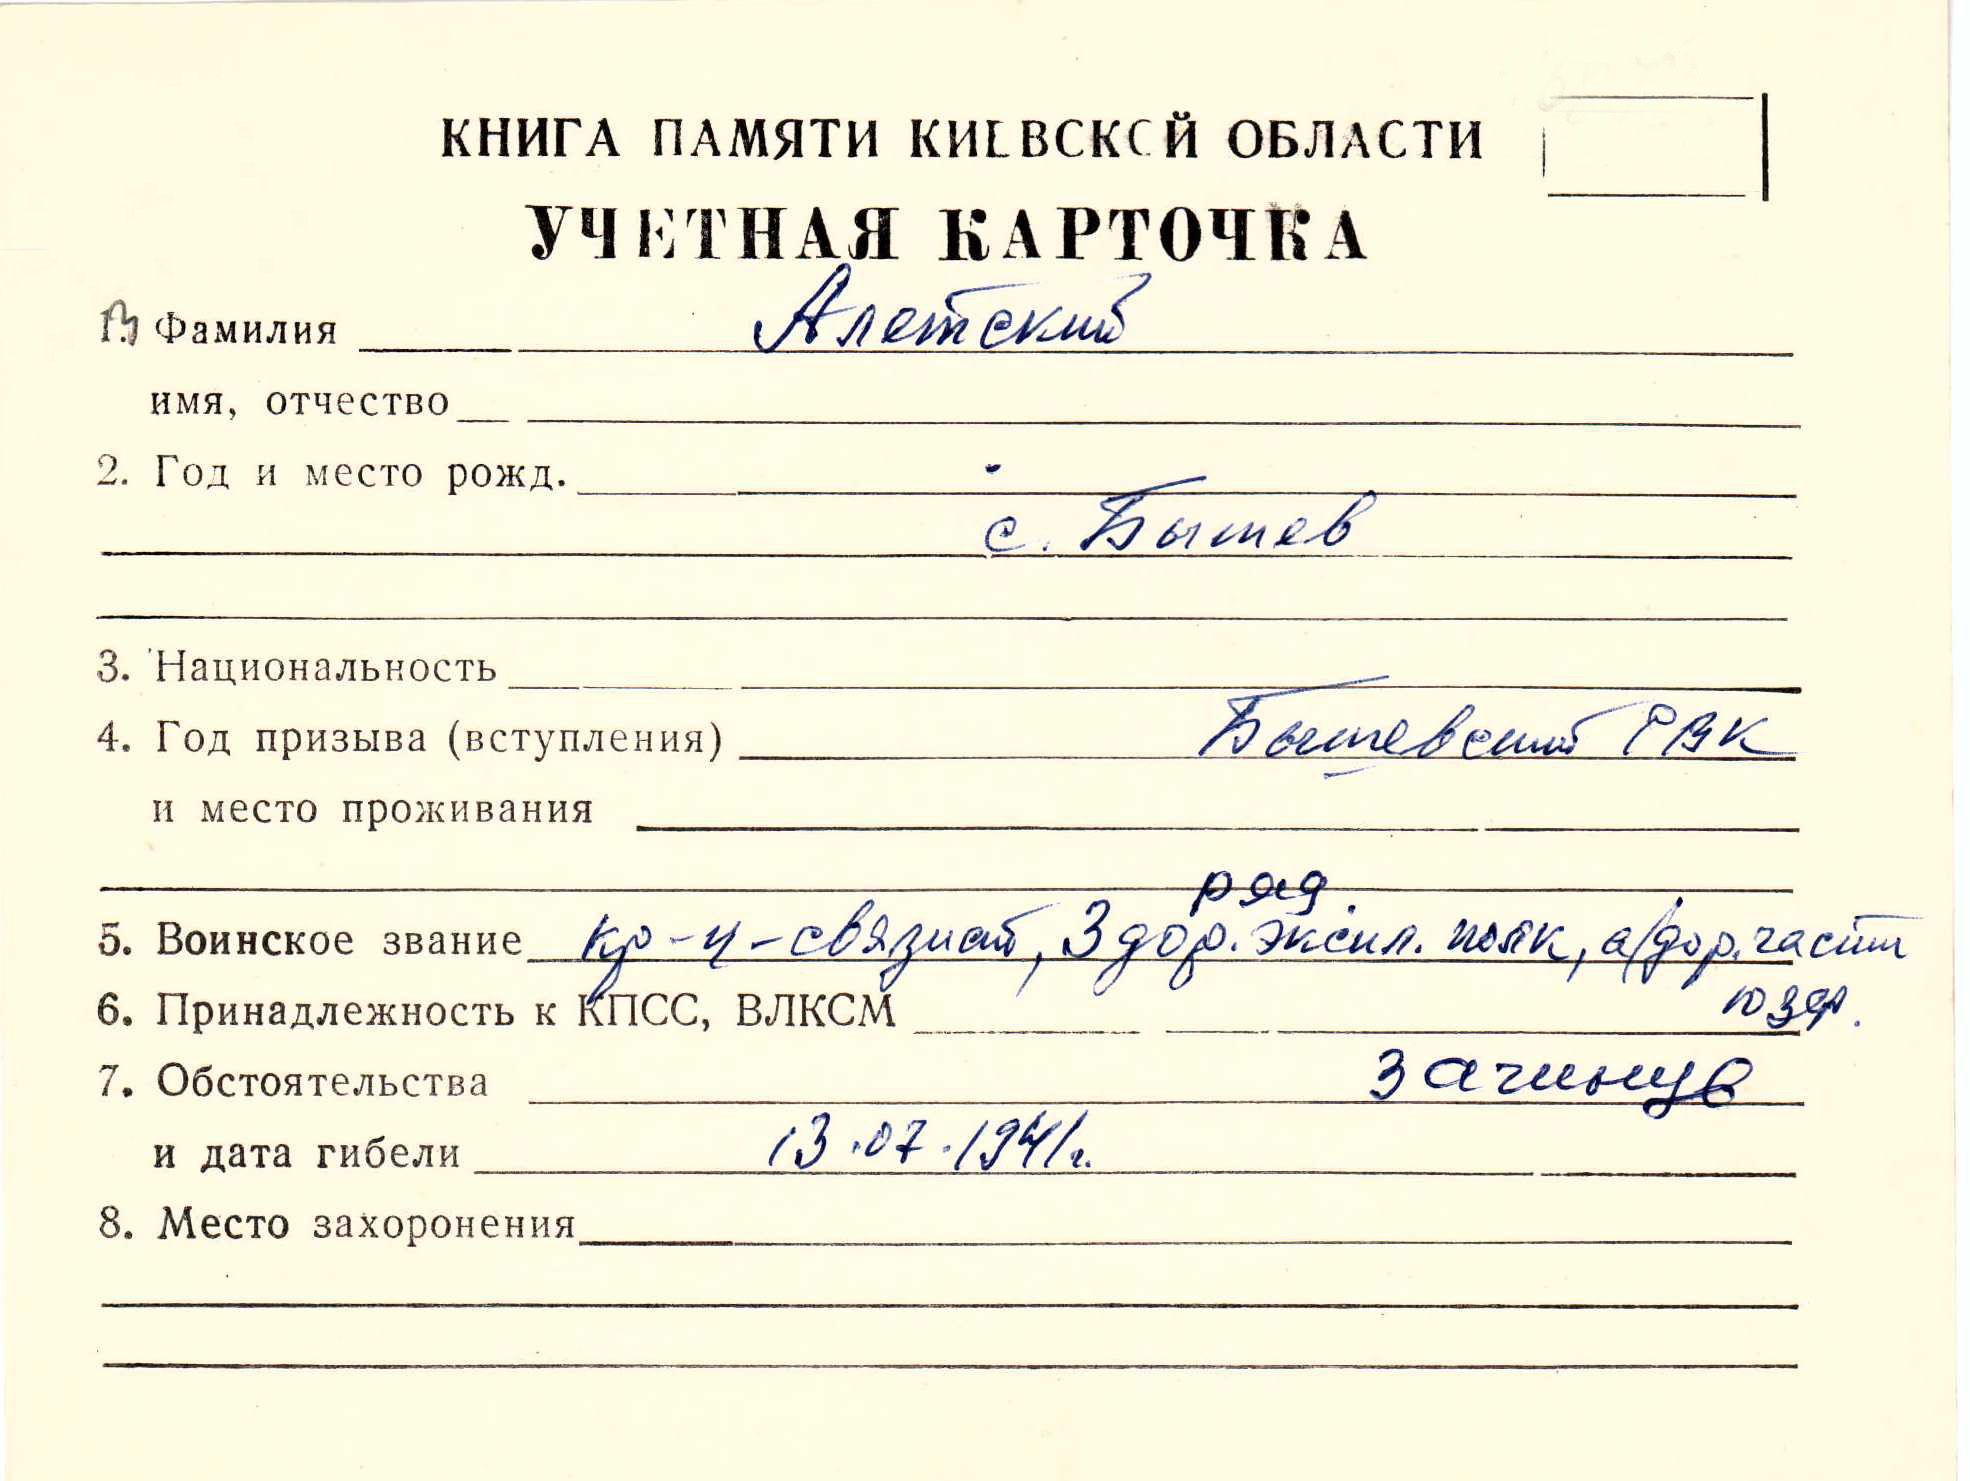 КНИГА ПАМЯТИ КИЕВСКОЙ ОБЛАСТИ
УЧЕТНАЯ КАРТОЧКА
1. Фамилия Алетский
имя, отчество
2. Год и место рожд.
с. Бышев
3. Национальность
4. Год призыва (вступления) Бышевский РВК
и место проживания
ряд.
5. Воинское звание кр-ц-связист, 3 дор. экспл. полк, а/дор. части
6. Принадлежность к КПСС, ВЛКСМ ЮЗФ.
7. Обстоятельства
и дата гибели 13.07.1941г.
8. Место захоронения